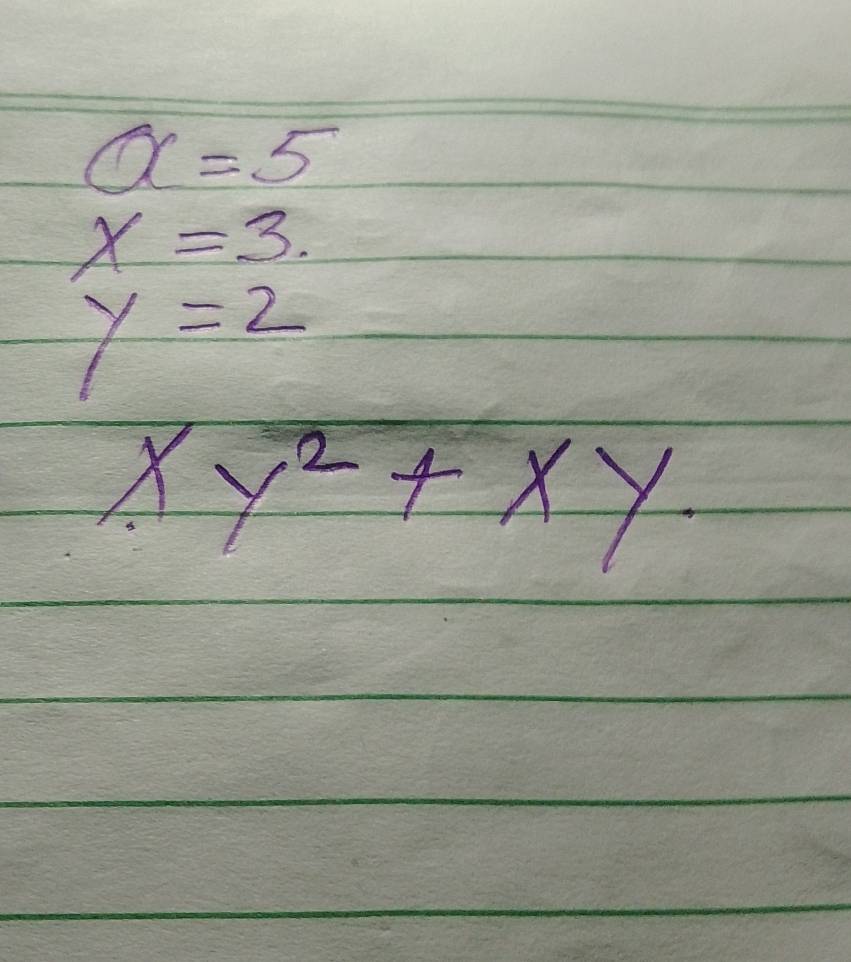 a = 5
x = 3.
y = 2
xy² + xy.